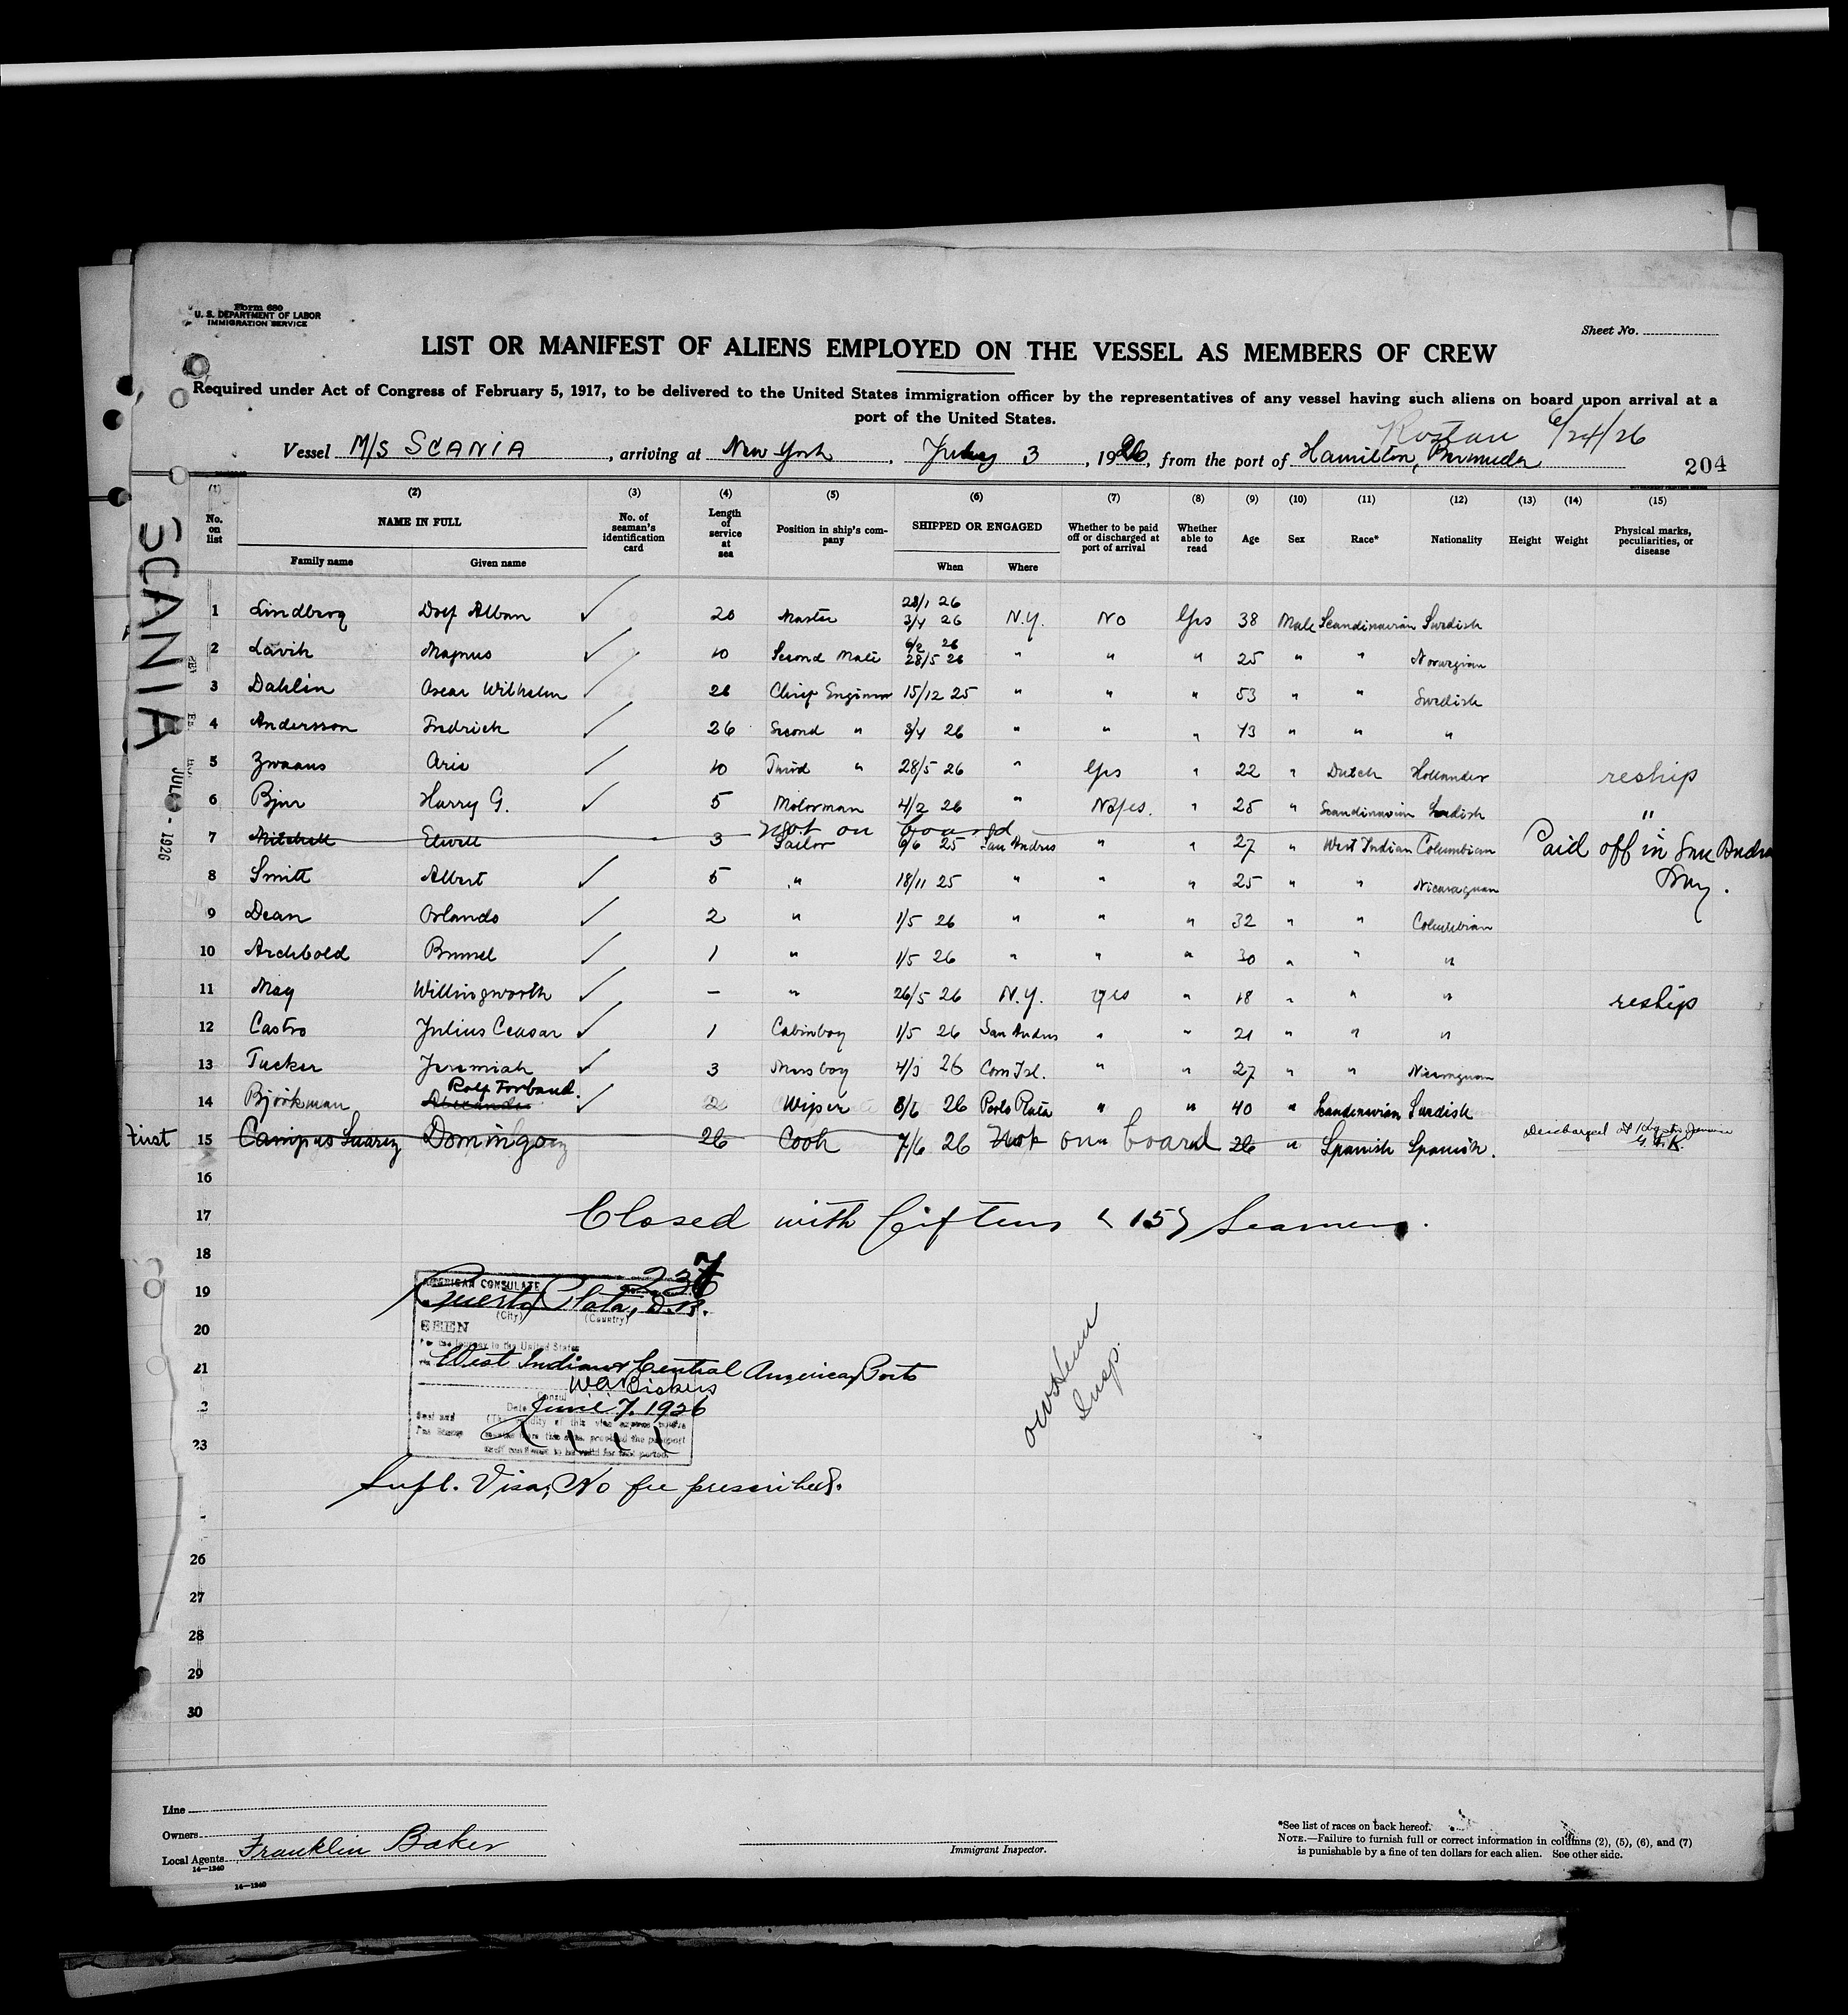 Form 680
U. S. DEPARTMENT OF LABOR
IMMIGRATION SERVICE
Sheet No.
LIST OR MANIFEST OF ALIENS EMPLOYED ON THE VESSEL AS MEMBERS OF CREW
Required under Act of Congress of February 5, 1917, to be delivered to the United States immigration officer by the representatives of any vessel having such aliens on board upon arrival at a
port of the United States.
Roatan 6/24/26
Vessel M/S SCANIA, arriving at New York, July 3, 1926, from the port of Hamilton, Bermuda
204
SCANIA
(1) (2) (3) (4) (5) (6) (7) (8) (9) (10) (11) (12) (13) (14) (15)
No. on list NAME IN FULL No. of seaman's identification card Length of service at sea Position in ship's company SHIPPED OR ENGAGED Whether to be paid off or discharged at port of arrival Whether able to read Age Sex Race* Nationality Height Weight Physical marks, peculiarities, or disease
Family name Given name When Where
1 Lindberg Dolf Alban ✓ 20 Master 28/1 26 3/4 26 N.Y. No Yes 38 Male Scandinavian Swedish
2 Lavik Magnus ✓ 10 Second Mate 6/2 26 28/5 26 " " " 25 " " Norwegian
3 Dahlin Oscar Wilhelm ✓ 26 Chief Engineer 15/12 25 " " " 53 " " Swedish
4 Andersson Fredrick ✓ 26 Second " 3/4 26 " " " 43 " " "
5 Zwaans Arie ✓ 10 Third " 28/5 26 " Yes " 22 " Dutch Hollander reship
6 Bjur Harry G. ✓ 5 Motorman 4/2 26 " No yes. " 25 " Scandinavian Swedish "
not on board
7 Mitchell Elwell 3 Sailor 6/6 25 San Andres " " 27 " West Indian Columbian Paid off in San Andres
8 Smitt Albert ✓ 5 " 18/11 25 " " " 25 " " Nicaraguan
9 Dean Orlando ✓ 2 " 1/5 26 " " " 32 " " Columbian
10 Archbold Brunel ✓ 1 " 1/5 26 " " " 30 " " "
11 May Willingworth ✓ — " 26/5 26 N.Y. yes " 18 " " " reship
12 Castro Julius Ceasar ✓ 1 Cabinboy 1/5 26 San Andres " " 21 " " "
13 Tucker Jeremiah ✓ 3 Messboy 4/3 26 Corn Isl. " " 27 " " Nicaraguan
Rolf Forband.
14 Björkman Alexander ✓ 2 Wiper 8/6 26 Porto Plata " " 40 " Scandinavian Swedish
First 15 Campus Suarez Domingo 26 Cook 7/6 26 Not on board 26 " Spanish Spanish. Discharged at
16
17 Closed with fifteen (15) Seamen.
18
237
19 AMERICAN CONSULATE
Puerto Plata, D.R.
(City) (Country)
20 SEEN
For the journey to the United States
21 West Indian & Central American Ports
W.A. Bickers
Consul
Date June 7, 1926
23
Supl. Visa, No fee prescribed.
Insp.
26
27
28
29
30
JUL - 1926
Line
Owners
Local Agents Franklin Baker
14—1240
14—1240
Immigrant Inspector.
*See list of races on back hereof.
NOTE.—Failure to furnish full or correct information in columns (2), (5), (6), and (7)
is punishable by a fine of ten dollars for each alien. See other side.